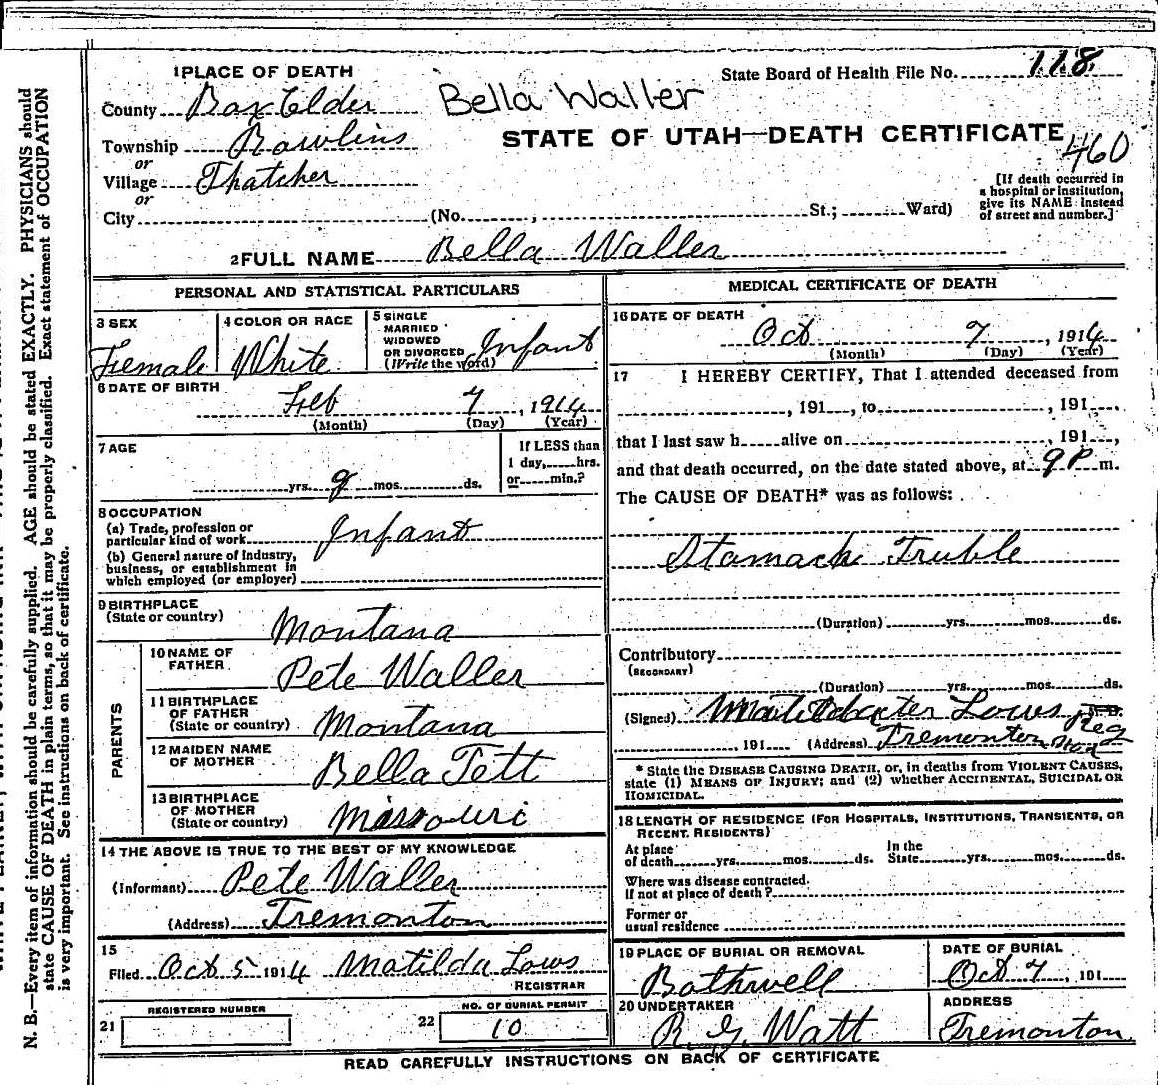 1 PLACE OF DEATH
State Board of Health File No. 118
County Box Elder
Bella Waller
STATE OF UTAH—DEATH CERTIFICATE
460
Township Rawlins
or
Village Thatcher
or
City (No. , St.; Ward)
[If death occurred in
a hospital or institution,
give its NAME instead
of street and number.]
2 FULL NAME Bella Waller
PERSONAL AND STATISTICAL PARTICULARS
3 SEX
Female
4 COLOR OR RACE
White
5 SINGLE
MARRIED
WIDOWED
OR DIVORCED
(Write the word)
Infant
6 DATE OF BIRTH
Feb 7, 1914
(Month) (Day) (Year)
7 AGE
yrs. 9 mos. ds.
If LESS than
1 day, hrs.
or min.?
8 OCCUPATION
(a) Trade, profession or
particular kind of work Infant
(b) General nature of Industry,
business, or establishment in
which employed (or employer)
9 BIRTHPLACE
(State or country)
Montana
PARENTS
10 NAME OF
FATHER
Pete Waller
11 BIRTHPLACE
OF FATHER
(State or country)
Montana
12 MAIDEN NAME
OF MOTHER
Bella Tett
13 BIRTHPLACE
OF MOTHER
(State or country)
Missouri
14 THE ABOVE IS TRUE TO THE BEST OF MY KNOWLEDGE
(Informant) Pete Waller
(Address) Tremonton
15
Filed Oct 5 1914 Matilda Lows
REGISTRAR
REGISTERED NUMBER
21
22
NO. OF BURIAL PERMIT
10
MEDICAL CERTIFICATE OF DEATH
16 DATE OF DEATH
Oct 7, 1914
(Month) (Day) (Year)
17 I HEREBY CERTIFY, That I attended deceased from
, 191 , to , 191 ,
that I last saw h alive on , 191 ,
and that death occurred, on the date stated above, at 9 P m.
The CAUSE OF DEATH* was as follows:
Stamach Truble
(Duration) yrs. mos. ds.
Contributory
(SECONDARY)
(Duration) yrs. mos. ds.
(Signed) Lows Reg
, 191 (Address) Tremonton
* State the DISEASE CAUSING DEATH, or, in deaths from VIOLENT CAUSES,
state (1) MEANS OF INJURY; and (2) whether ACCIDENTAL, SUICIDAL OR
HOMICIDAL.
18 LENGTH OF RESIDENCE (FOR HOSPITALS, INSTITUTIONS, TRANSIENTS, OR
RECENT RESIDENTS)
At place
of death yrs. mos. ds.
In the
State yrs. mos. ds.
Where was disease contracted.
If not at place of death?
Former or
usual residence
19 PLACE OF BURIAL OR REMOVAL
Bothwell
DATE OF BURIAL
Oct 7, 191
20 UNDERTAKER
R. G. Watt
ADDRESS
Tremonton
READ CAREFULLY INSTRUCTIONS ON BACK OF CERTIFICATE
N. B.—Every item of information should be carefully supplied. AGE should be stated EXACTLY. PHYSICIANS should
state CAUSE OF DEATH in plain terms, so that it may be properly classified. Exact statement of OCCUPATION
is very important. See instructions on back of certificate.